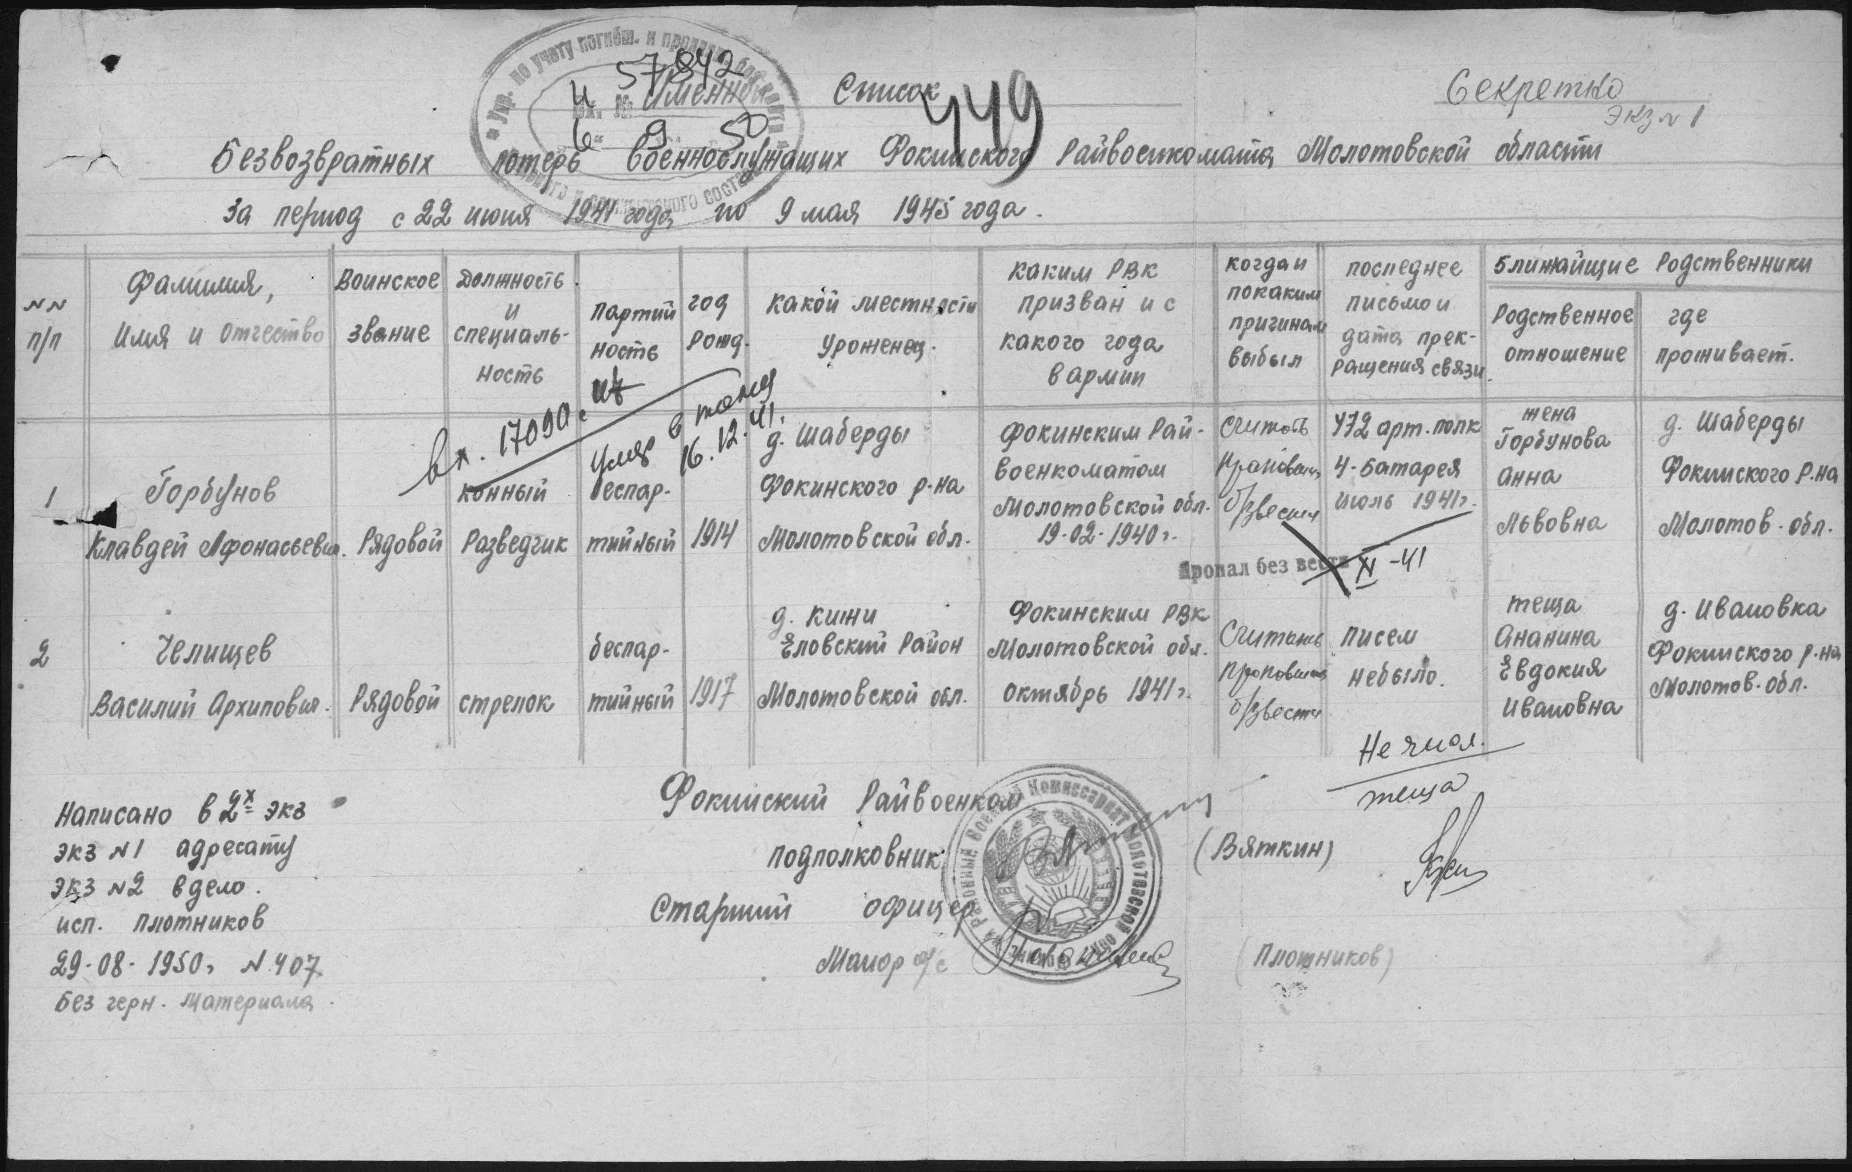 Упр. по учету погибш. и пропавш. без вести
57842
вх. №
Именной Список
449
Секретно
экз № 1
6 9 50
Безвозвратных потерь военнослужащих Фокинского Райвоенкомата Молотовской области
За период с 22 июня 1941 года по 9 мая 1945 года.
№№ п/п
Фамилия, Имя и Отчество
Воинское звание
Должность и специаль-ность
партий ность
год рожд.
какой местности уроженец.
каким РВК призван и с какого года в армии
когда и по каким причинам выбыл
последнее письмо и дата прек-ращения связи.
Ближайщие Родственники
Родственное отношение
где проживает.
вх. 17090с
Умер в плену
16.12.41.
1
Горбунов
Клавдей Афонасьевич.
Рядовой
конный
Разведчик
беспар-
тийный
1914
д. Шаберды
Фокинского р-на
Молотовской обл.
Фокинским Рай-
военкоматом
Молотовской обл.
19-02-1940г.
Считать
пропавшим
б/вести
472 арт. полк
4-Батарея
июль 1941г.
жена
Горбунова
Анна
Львовна
д. Шаберды
Фокинского р.на
Молотов. обл.
Пропал без вести
XI -41
2
Челищев
Василий Архипович.
Рядовой
стрелок
беспар-
тийный
1917
д. Кижи
Еловский Район
Молотовской обл.
Фокинским РВК
Молотовской обл.
октябрь 1941г.
Считать
пропавшим
б/вести
писем
небыло.
теща
Ананина
Евдокия
Ивановна
д. Ивановка
Фокинского р.на
Молотов. обл.
Не числ.
теща
Написано в 2х экз
экз №1 адресату
экз №2 в дело.
исп. Плотников
29-08-1950г. №407
Без черн. материала.
Фокинский Райвоенком
подполковник
(Вяткин)
Старший офицер
Майор а/с
(Плотников)
Районный Военный Комиссариат Молотовской обл.